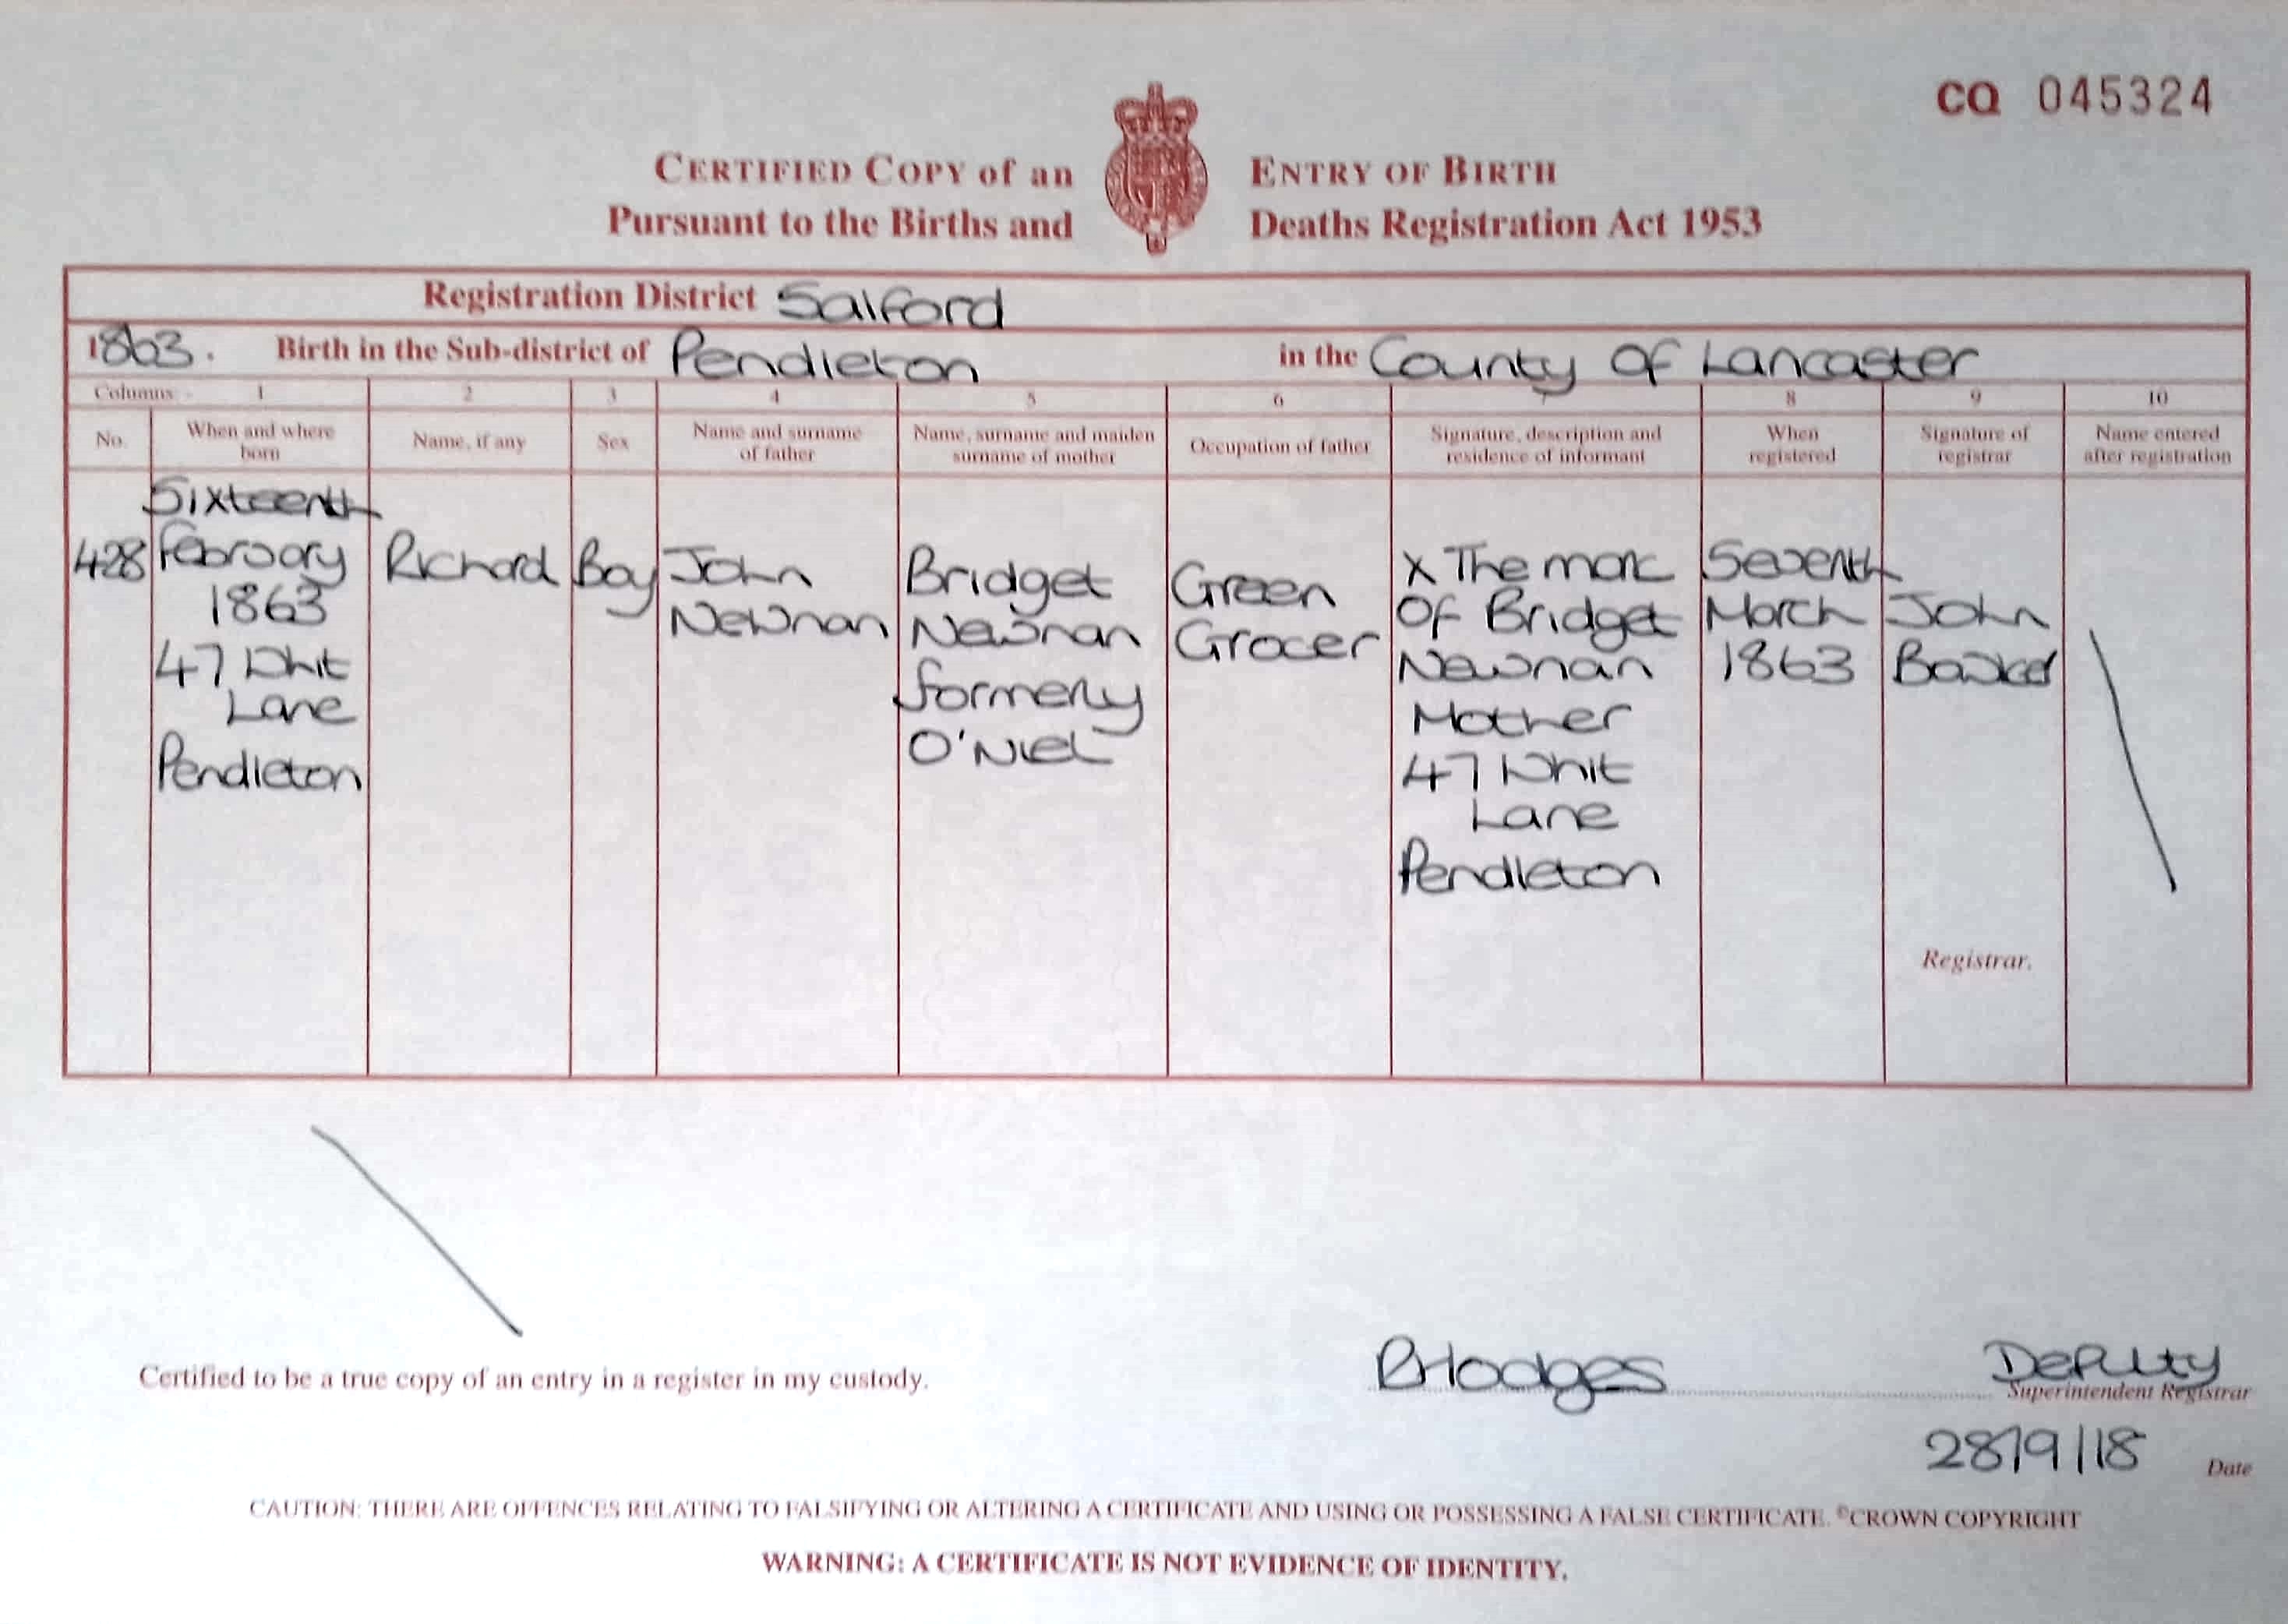 CQ 045324
CERTIFIED COPY of an ENTRY OF BIRTH
Pursuant to the Births and Deaths Registration Act 1953
Registration District Salford
1863. Birth in the Sub-district of Pendleton in the County of Lancaster
Columns:- 1 2 3 4 5 6 7 8 9 10
No.
When and where
born
Name, if any
Sex
Name and surname
of father
Name, surname and maiden
surname of mother
Occupation of father
Signature, description and
residence of informant
When
registered
Signature of
registrar
Name entered
after registration
428
Sixteenth
February
1863
47 Whit
Lane
Pendleton
Richard
Boy
John
Newnan
Bridget
Newnan
formerly
O'Niel
Green
Grocer
X The mark
Of Bridget
Newnan
Mother
47 Whit
Lane
Pendleton
Seventh
March
1863
John
Registrar.
Certified to be a true copy of an entry in a register in my custody.
BHodges
Deputy
Superintendent Registrar
28/9/18 Date
CAUTION: THERE ARE OFFENCES RELATING TO FALSIFYING OR ALTERING A CERTIFICATE AND USING OR POSSESSING A FALSE CERTIFICATE. ©CROWN COPYRIGHT
WARNING: A CERTIFICATE IS NOT EVIDENCE OF IDENTITY.